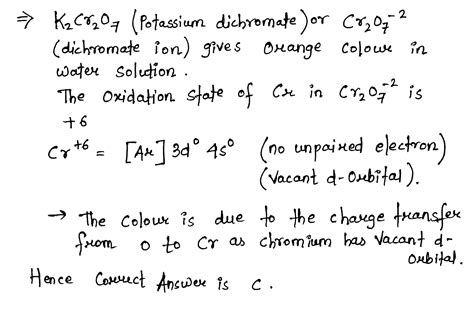 ⇒ K₂Cr₂O₇ (Potassium dichromate) or Cr₂O₇⁻²
(dichromate ion) gives Orange Colour in
water solution.
The Oxidation state of Cr in Cr₂O₇⁻² is
+6
Cr⁺⁶ = [Ar] 3d⁰ 4s⁰ (no unpaired electron)
(Vacant d-Orbital).
→ The Colour is due to the charge transfer
from O to Cr as chromium has Vacant d-
Orbital.
Hence Correct Answer is C.